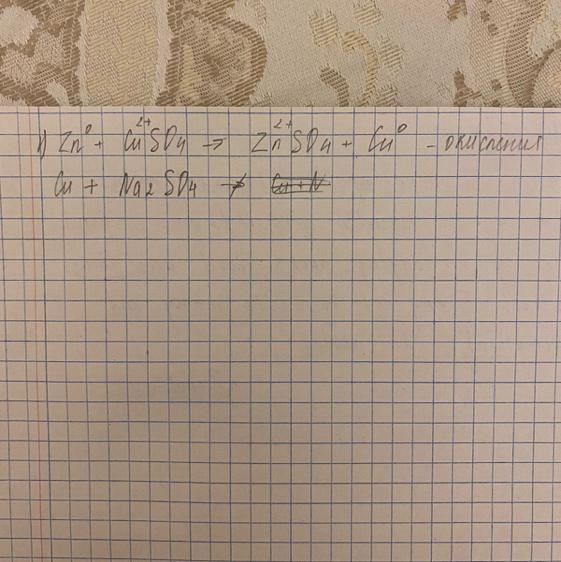 1) Zn⁰ + Cu²⁺SO₄ → Zn²⁺SO₄ + Cu⁰ - окисления
Cu + Na₂SO₄ ↛